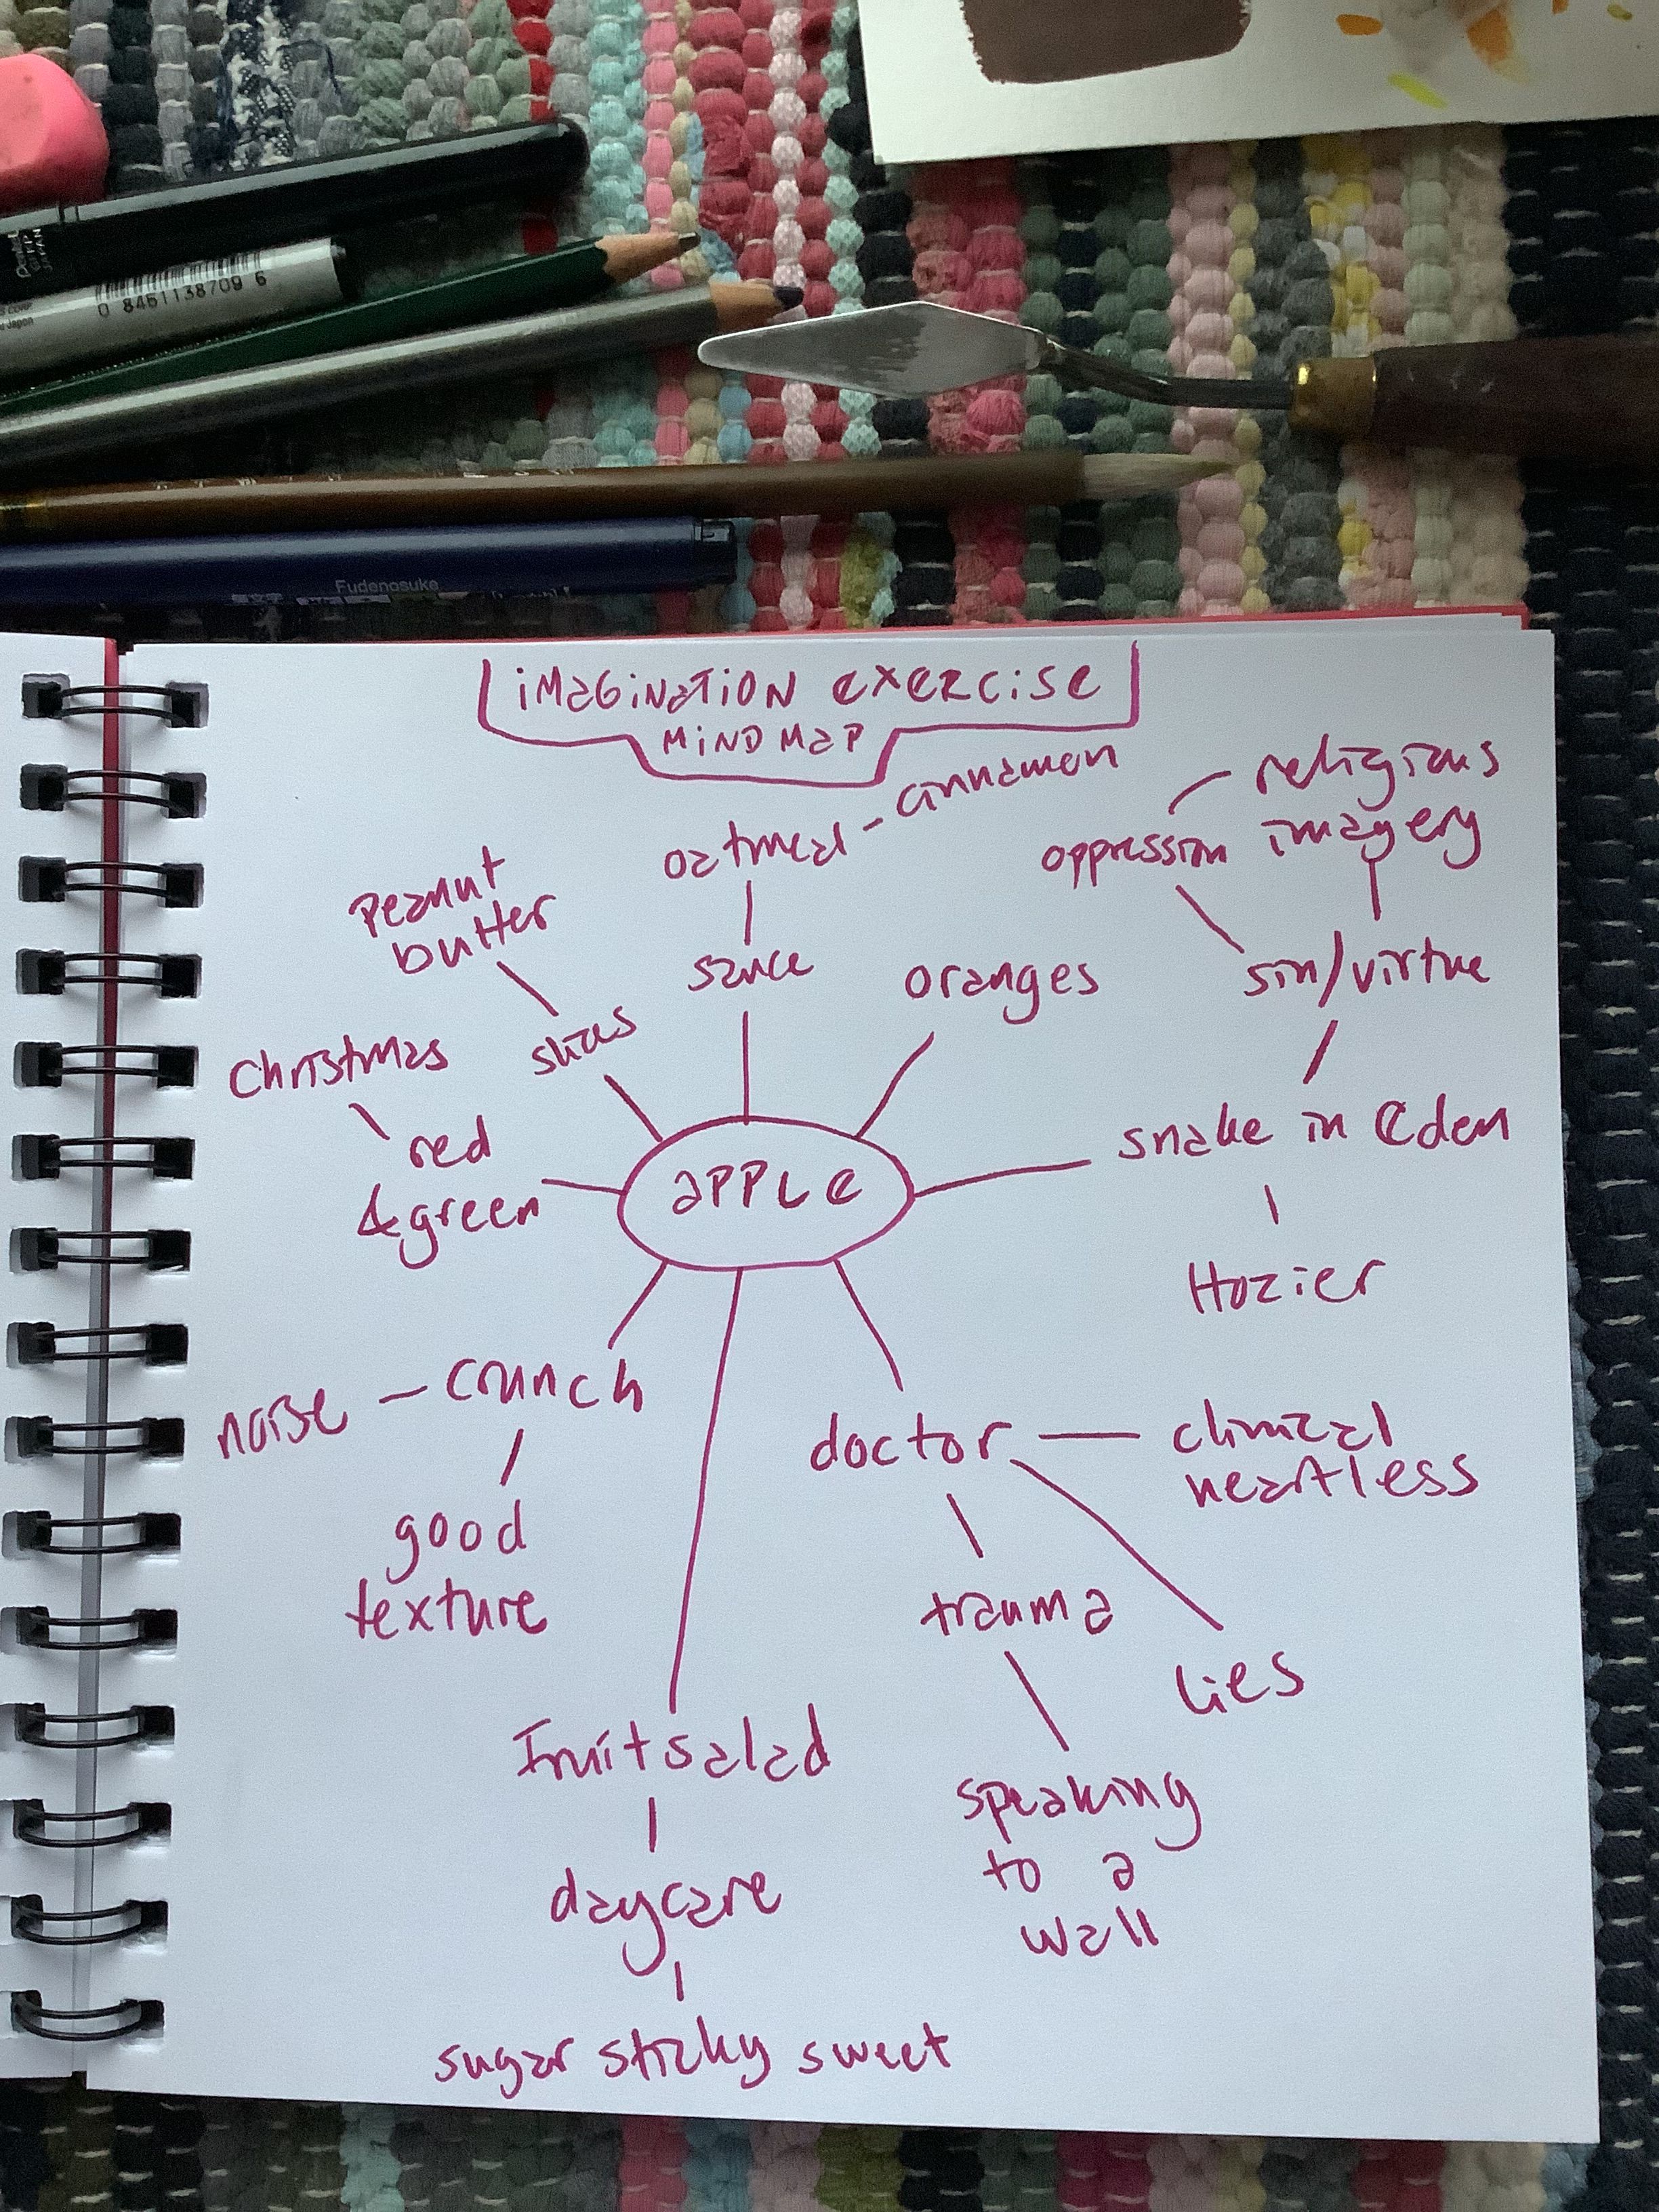 Pentel
JAPAN
0 8451138709 6
Japan
Fudenosuke
iMaGiNaTiON eXeRCiSe
MiND MaP
cinnamon
religious
imagery
oatmeal
oppression
peanut
butter
sauce
oranges
sin/virtue
slices
christmas
red
& green
aPPLe
snake in Eden
Hozier
noise
crunch
doctor
clinical
heartless
good
texture
trauma
lies
fruit salad
speaking
to a
wall
daycare
sugar sticky sweet